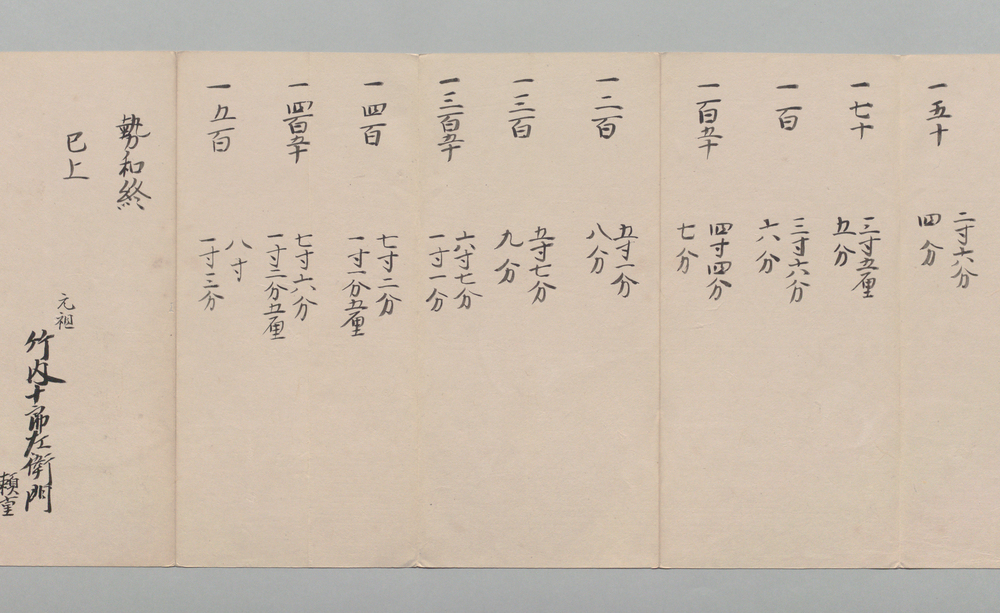 一五十
二寸六分
四分
一七十
三寸五厘
五分
一百
三寸六分
六分
一百五十
四寸四分
七分
一二百
五寸一分
八分
一三百
五寸七分
九分
一三百五十
六寸七分
一寸一分
一四百
七寸二分
一寸一分五厘
一四百五十
七寸六分
一寸二分五厘
一五百
八寸
一寸三分
勢和終
已上
元祖
竹内十郎左衛門
頼重